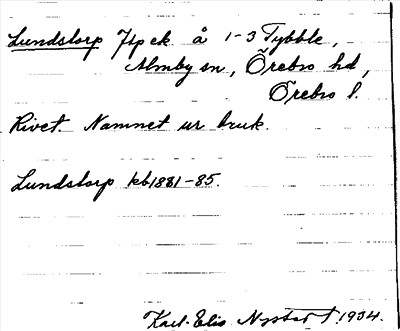 Lundstorp Jtp ek å 1-3 Tybble,
Almby sn, Örebro hd,
Örebro l.
Rivet. Namnet ur bruk.
Lundstorp kb 1881-85.
Karl-Elis 1934.